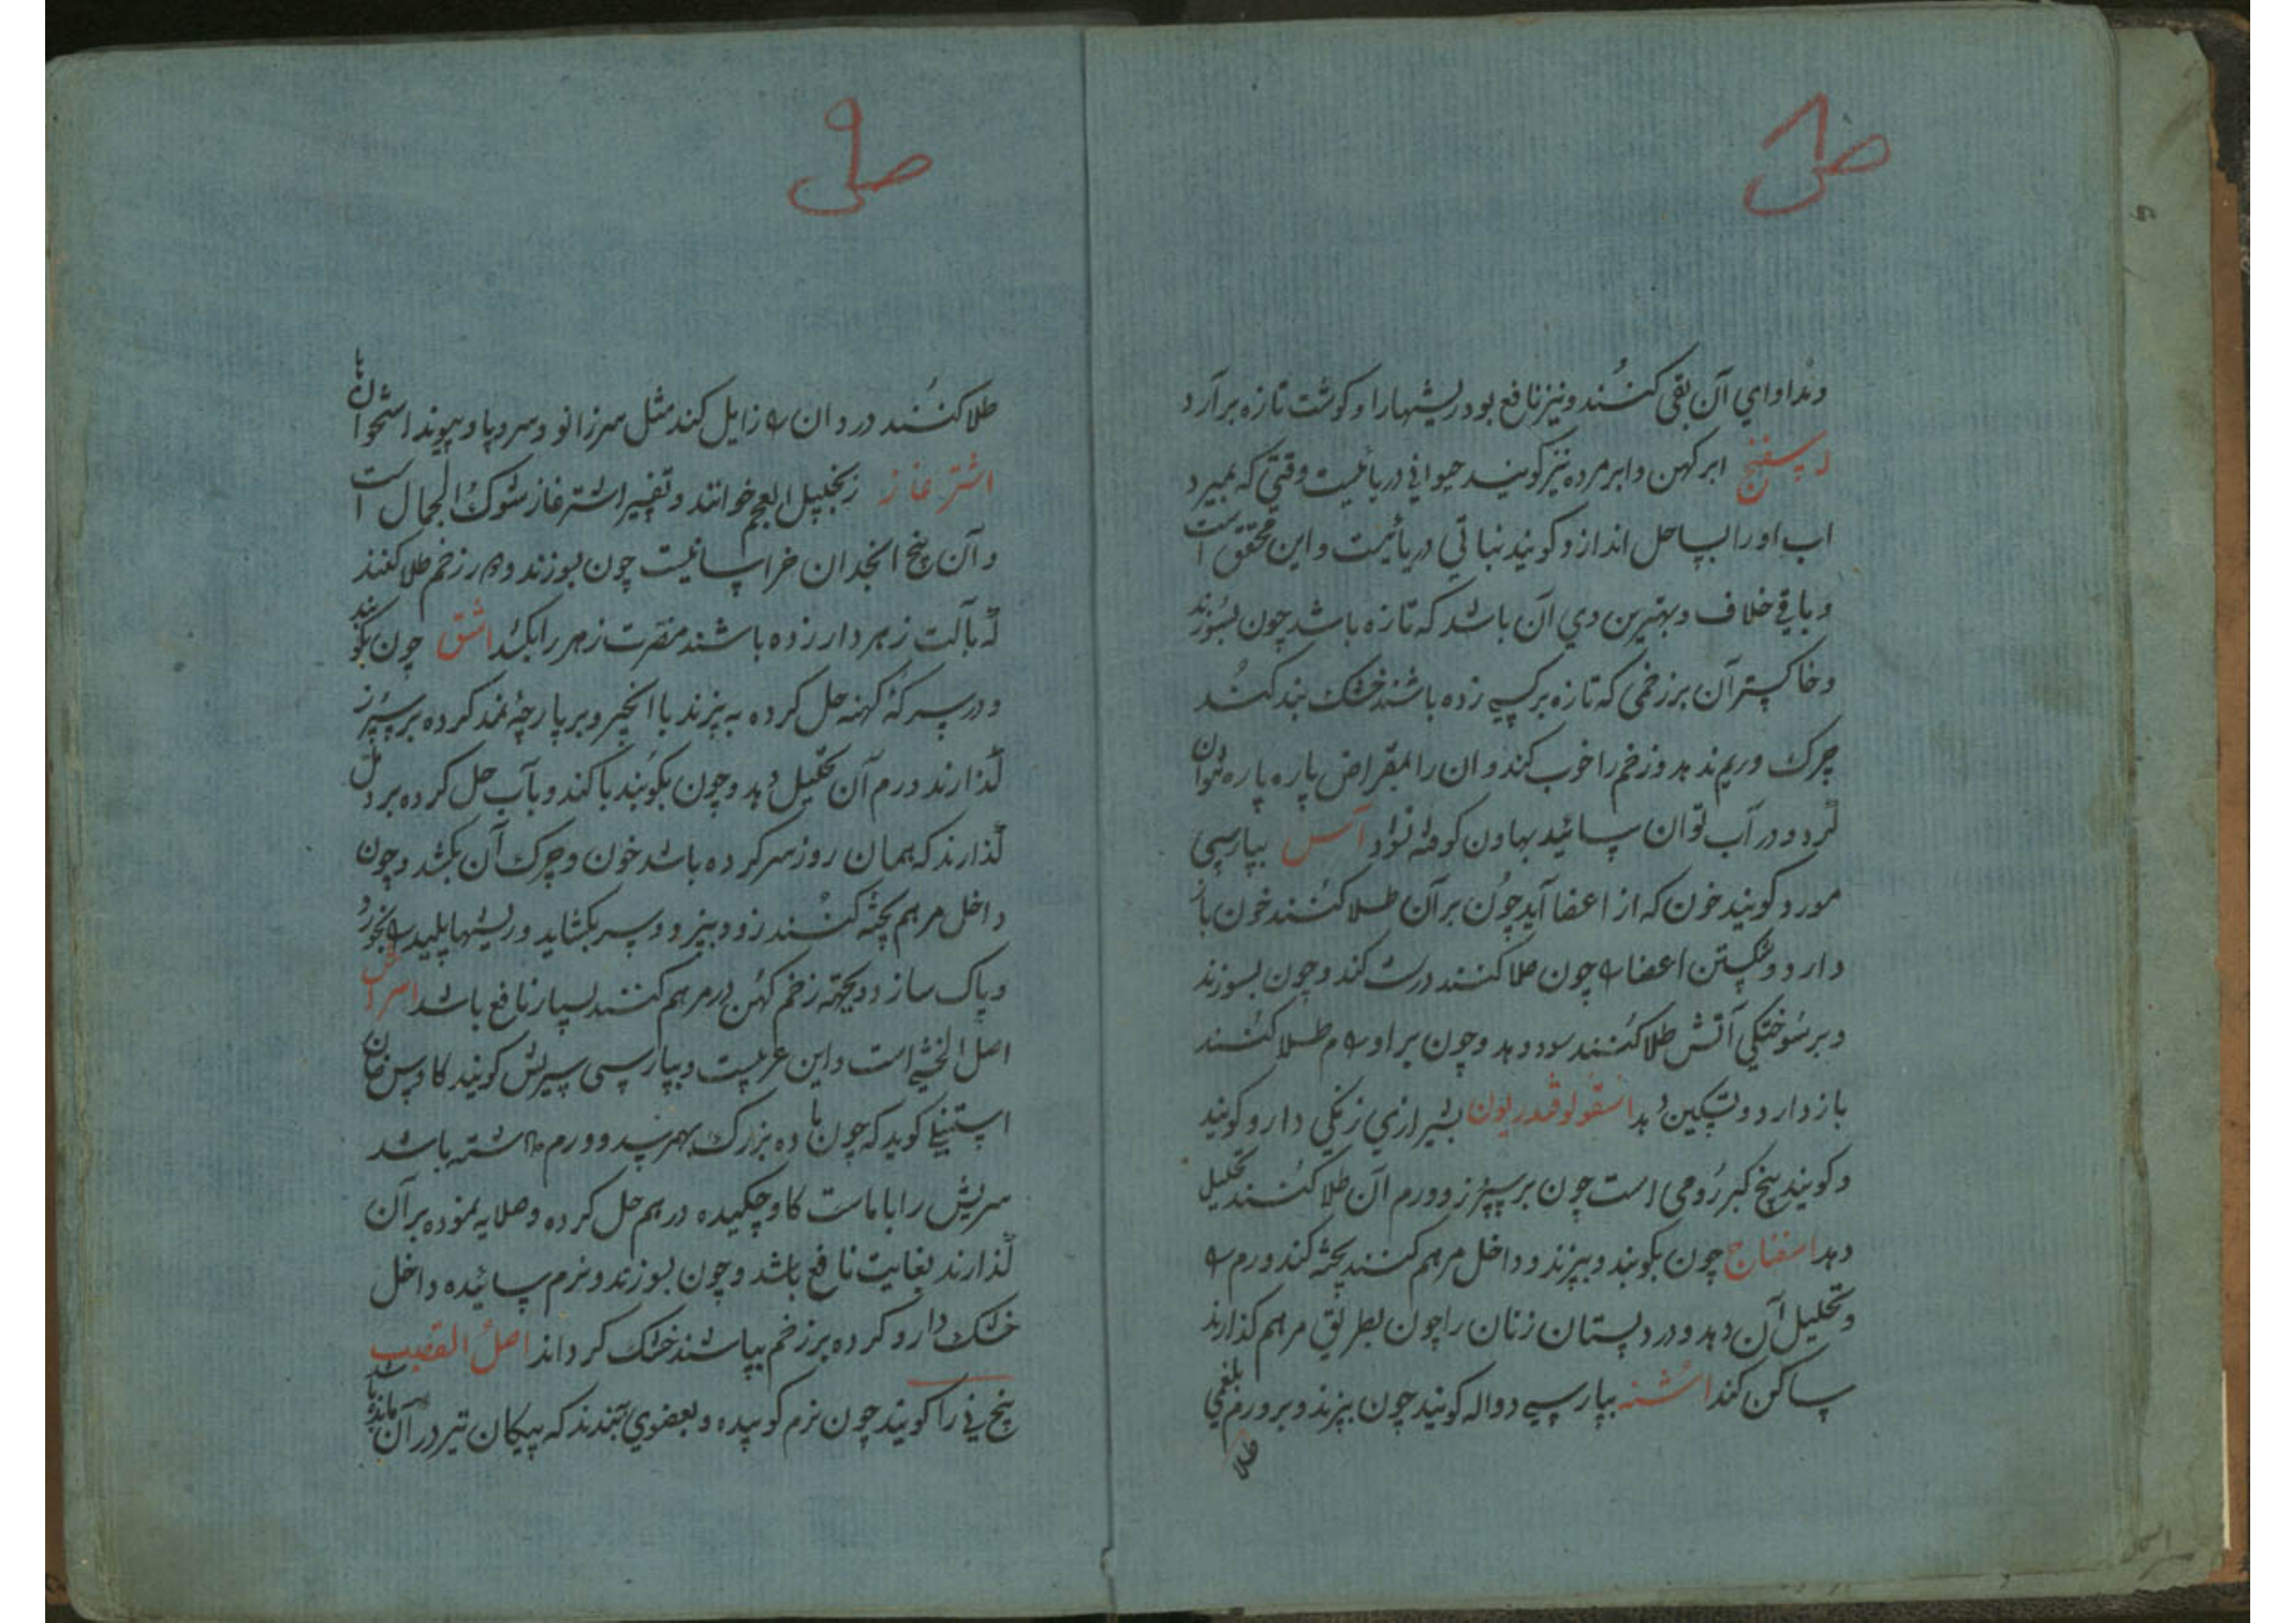 ص۸
ومداوای آن بقی کنند و نیز نافع بود ریشهارا و کوشت تازه برآرد
اسپفنج ابر کهن و ابر مرده نیز کویند حیوانی دریائیست وقتی که بمیرد
اب اورا بساحل اندازد کویند نباتی دریائیست و این محقق است
و باقی خلاف و بهترین وی آن باشد که تازه باشد چون بسوزند
و خاکستر آن بر زخمی که تازه بر کسی زده باشند خشک بند کنند
چرک و ریم ندهد و زخم را خوب کند و ان را بمقراض پاره پاره توان
کرد و در آب توان سائید بهاون کوفته آس بپارسی
مورد کویند خون که از اعضا آید چون بر آن طلا کنند خون باز
دارد و شکستن اعضا چون طلا کنند درست کند و چون بسوزند
و بر سوختکی آتش طلا کنند سود دهد و چون بر اورام طلا کنند
باز دارد و تسکین دهد اسقولوقندریون بشیرازی زنکی دارو کویند
و کویند بیخ کبر رومی است چون بر سپرز و ورم آن طلا کنند تحلیل
دهد اسفناج چون بکوبند و بپزند و داخل مرهم کنند پخته کند ورم
و تحلیل آن دهد و درد پستان زنان را چون بطریق مرهم گذارند
ساکن کند اشنه بپارسی دواله کویند چون بپزند و بر ورم بلغمی
طلا
ص۹
طلا کنند درد ان زایل کند مثل سر زانو و سر دپا و پیوند استخوان با
اشتر غاز زنجبیل العجم خوانند و تفسیر اشتر غاز شوک الجمال است
و آن بیخ انجدان خراسانیست چون بسوزند و بر زخم طلا کنند
که بآلت زهر دار زده باشند مضرت زهر را بکشد اشق چون بکوبند
و در سرکهٔ کهنه حل کرده به پزند با انجیر و بر پارچهٔ نمد کرده بر سپرز
گذارند ورم آن تحلیل دهد و چون بکوبند با کند و بآب حل کرده بر دمل
گذارند که همان روز سر کرده باشد خون و چرک آن بکشد و چون
داخل مرهم پخته کنند زود بپزد و سر بکشاید و ریشها پلید بخورد
و پاک سازد و بجهته زخم کهن در مرهم کنند بسیار نافع باشد اسراش
اصل الخنثی است و این عربیست و بپارسی سیریش کویند کاوس خان
استنبلی کوید که چون ماده بزرک بهم رسد و ورم داشته باشد
سریش را با ماست کاو چکیده در هم حل کرده و صلایه نموده بر آن
گذارند بغایت نافع باشد و چون بسوزند و نرم سائیده داخل
خشک دارو کرده بر زخم بپاشند خشک کرداند اصل القصب
بیخ نی را کویند چون نرم کوبیده و بعضوی بندند که پیکان تیر در آن مانده باشد